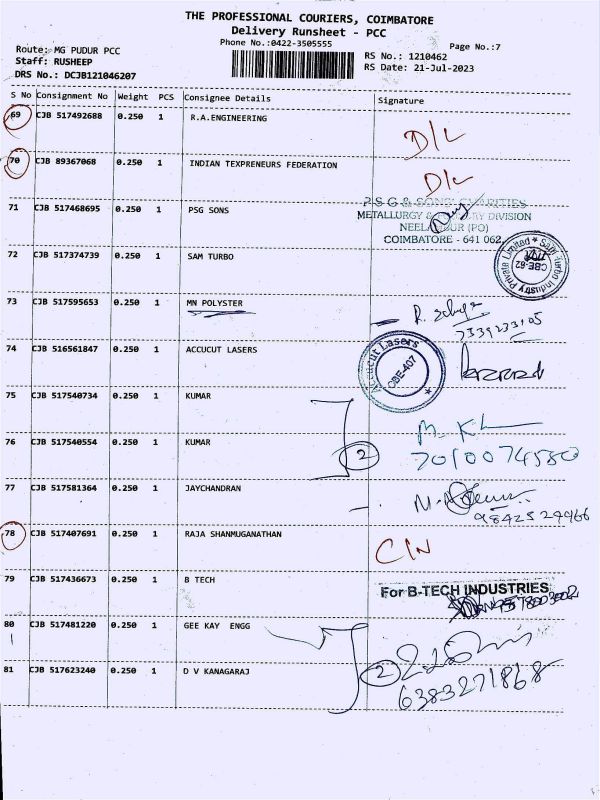 THE PROFESSIONAL COURIERS, COIMBATORE
Delivery Runsheet - PCC
Phone No.:0422-3505555
Page No.:7
Route: MG PUDUR PCC
Staff: RUSHEEP
DRS No.: DCJB121046207
RS No.: 1210462
RS Date: 21-Jul-2023
S No Consignment No Weight PCS Consignee Details Signature
69 CJB 517492688 0.250 1 R.A.ENGINEERING D/L
70 CJB 89367068 0.250 1 INDIAN TEXPRENEURS FEDERATION D/L
71 CJB 517468695 0.250 1 PSG SONS
P S G & SONS' CHARITIES
METALLURGY & DIVISION
(PO)
COIMBATORE - 641 062
72 CJB 517374739 0.250 1 SAM TURBO
Sam Turbo Industry Private Limited
CBE-62
73 CJB 517595653 0.250 1 MN POLYSTER
74 CJB 516561847 0.250 1 ACCUCUT LASERS
Accucut Lasers
CBE-407
75 CJB 517540734 0.250 1 KUMAR
76 CJB 517540554 0.250 1 KUMAR 2
7010074580
77 CJB 517581364 0.250 1 JAYCHANDRAN
9842524966
78 CJB 517407691 0.250 1 RAJA SHANMUGANATHAN C/N
79 CJB 517436673 0.250 1 B TECH
For B-TECH INDUSTRIES
80 CJB 517481220 0.250 1 GEE KAY ENGG
81 CJB 517623240 0.250 1 D V KANAGARAJ 2
6383271868